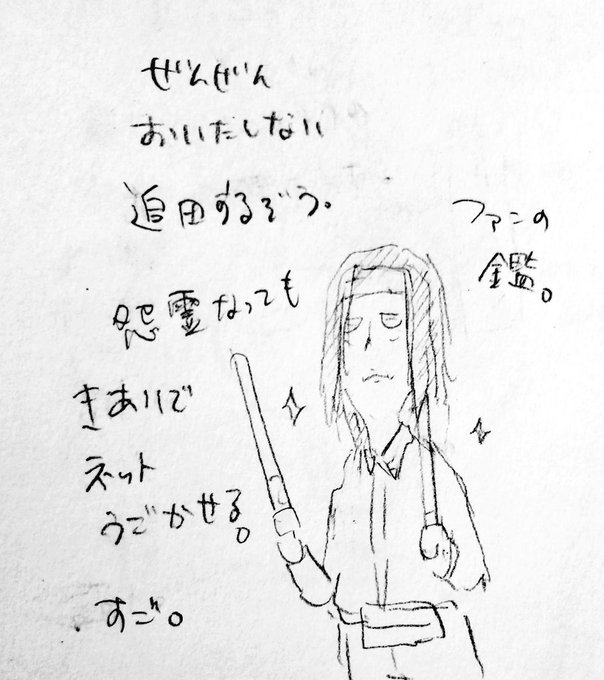 ぜんぜん
おいだしない
追田するぞう。
怨霊なっても
きあいで
ネット
うごかせる。
すご。
ファンの
鑑。